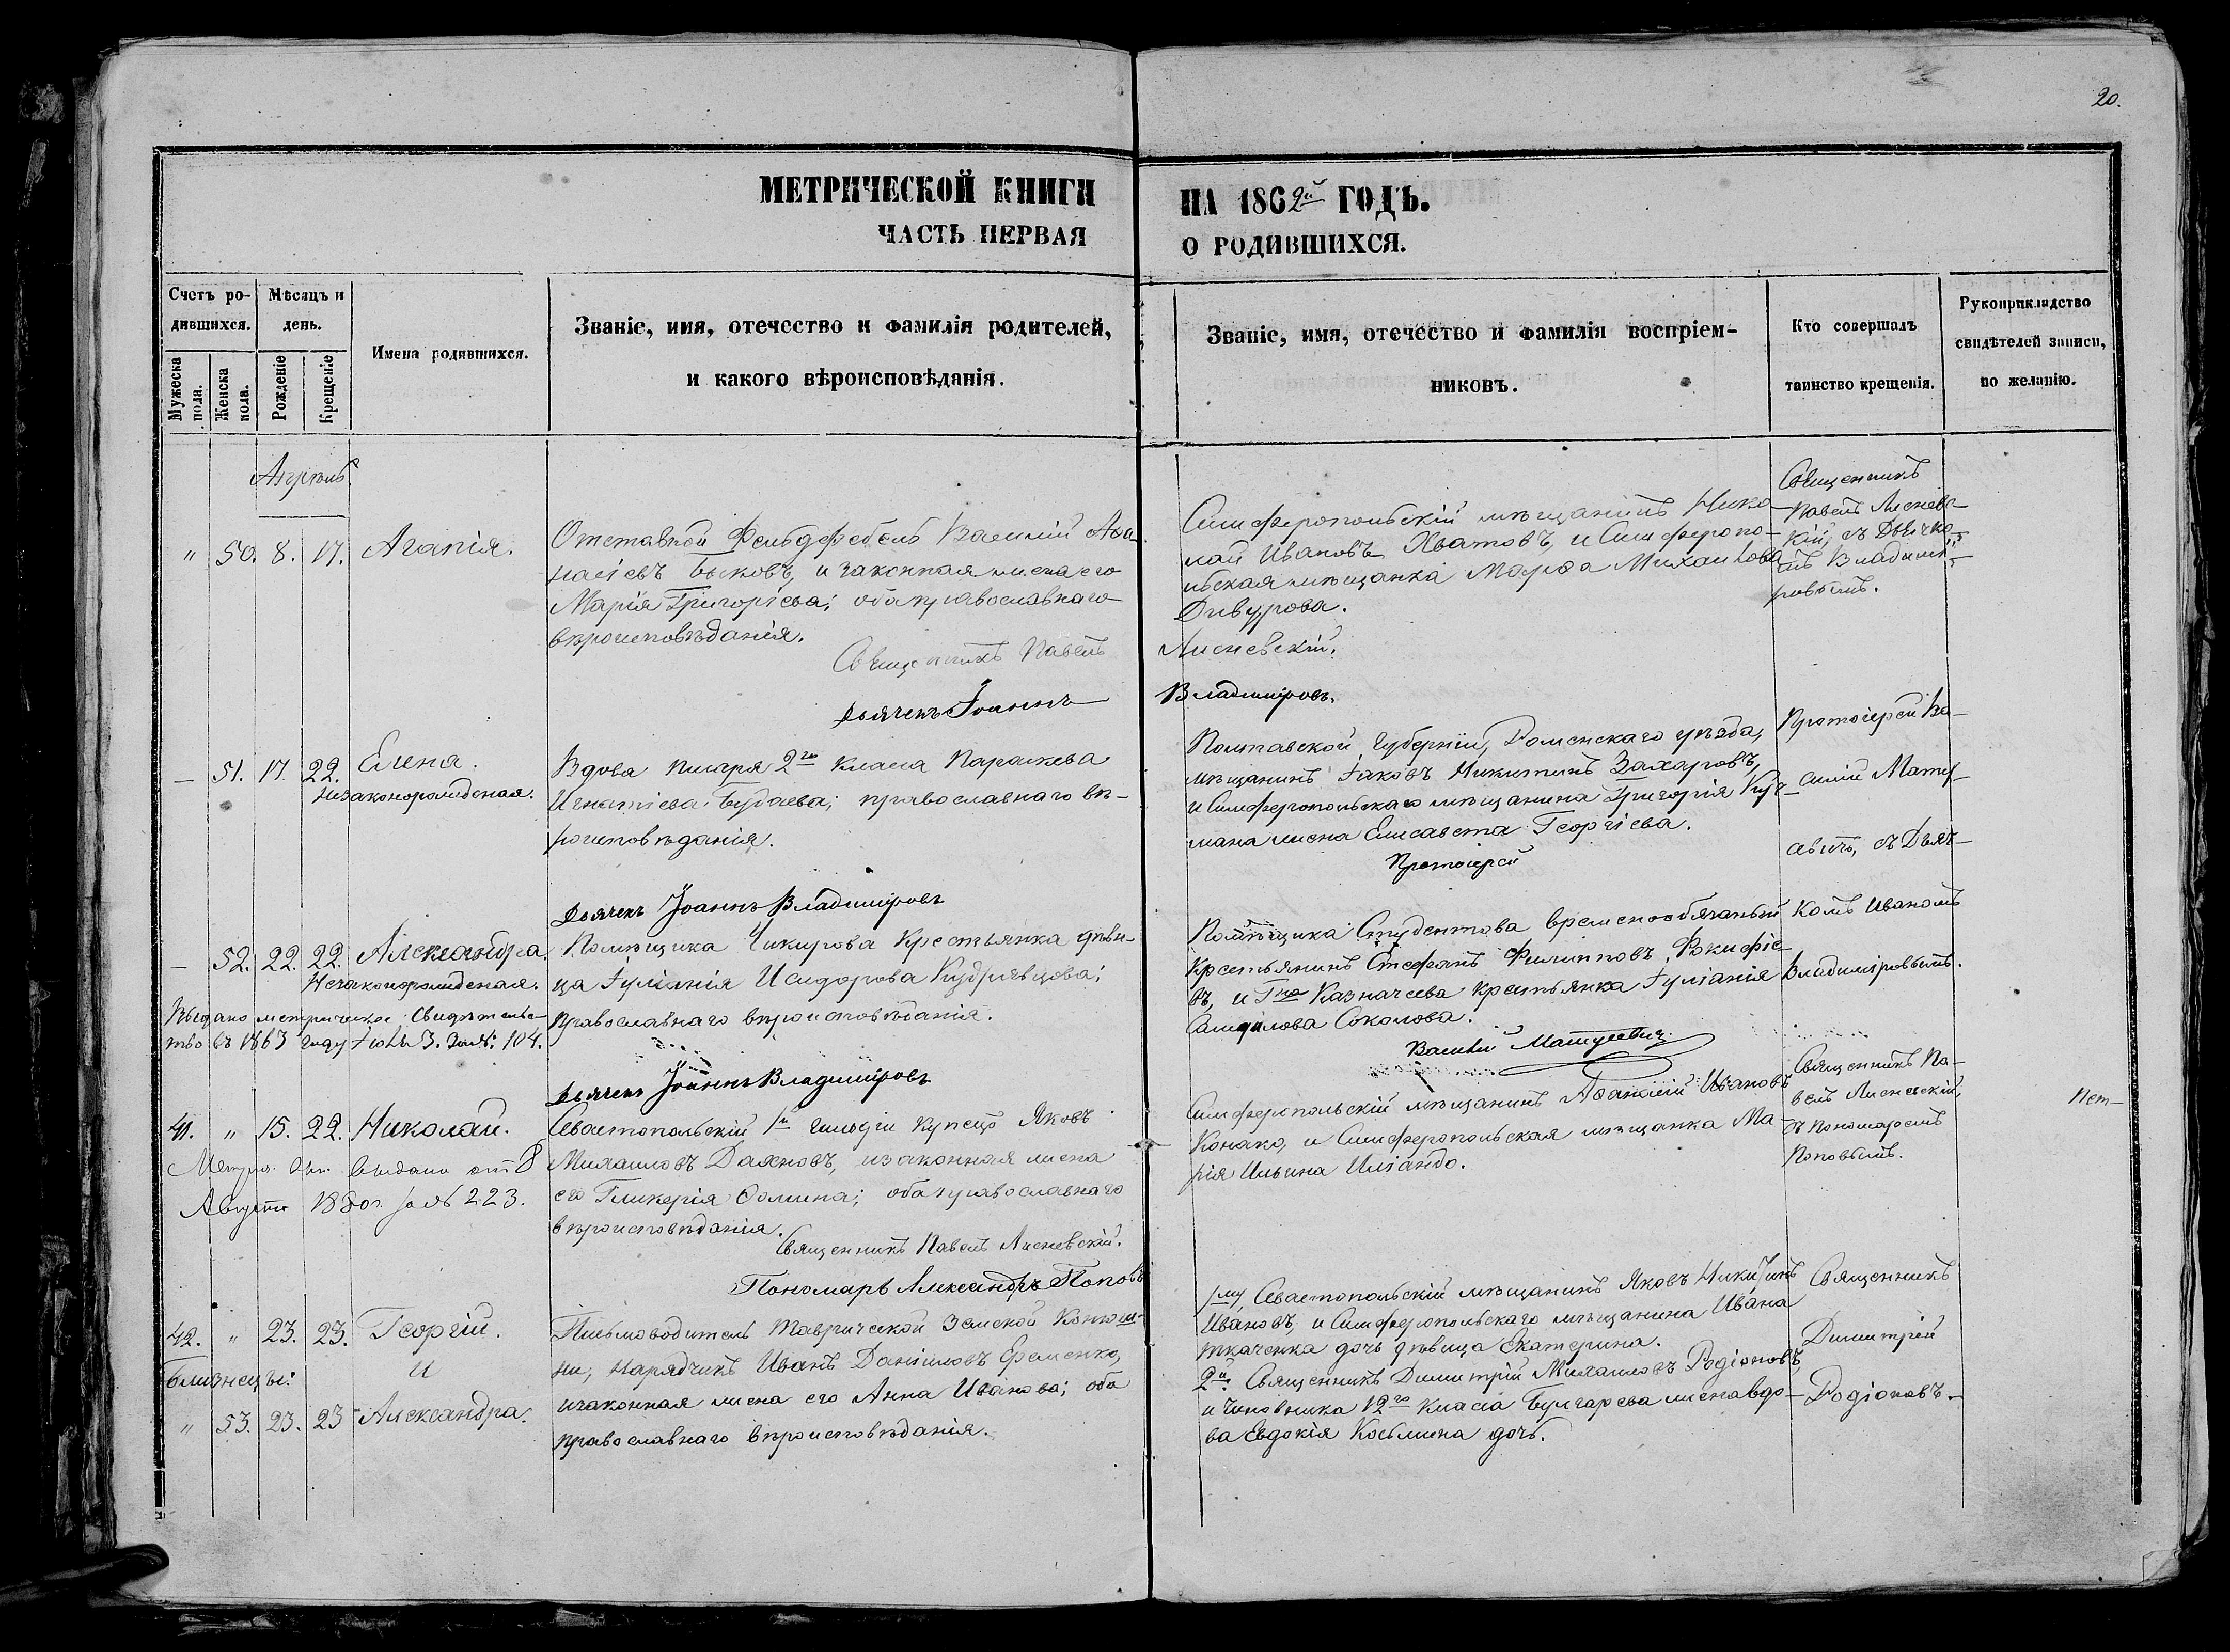 20.
МЕТРИЧЕСКОЙ КНИГИ НА 1862й ГОДЪ.
ЧАСТЬ ПЕРВАЯ О РОДИВШИХСЯ.
Счетъ ро-
дившихся.
Мужеска пола.
Женска пола.
Мѣсяцъ и
день.
Рожденіе
Крещеніе
Имена родившихся.
Званіе, имя, отечество и фамилія родителей,
и какого вѣроисповѣданія.
Званіе, имя, отечество и фамилія воспріем-
никовъ.
Кто совершалъ
таинство крещенія.
Рукоприкладство
свидѣтелей записи,
по желанію.
Апрѣль
" 50. 8. 17. Агапія.
Отставной Фельдфебель Василий Афа
насіевъ Быковъ, и законная жена его
Марія Григоріева; оба православнаго
вѣроисповѣданія.
Священникъ Павелъ
Дьячекъ Іоаннъ
Симферопольскій мѣщанинъ Нико-
лай Ивановъ Хватовъ, и Симферопо-
льская мѣщанка Марфа Михайлова
Лисневскій.
Владиміровъ.
Священникъ
Павелъ Лиснев-
кій, съ Дьячко-
мъ Владимі-
ровымъ.
— 51. 17. 22. Елена.
Незаконорожденая.
Вдова писаря 2го класса Параскева
Игнатіева Будаева; православнаго вѣ-
роисповѣданія.
Дьячекъ Іоаннъ Владиміровъ
Полтавской Губерніи, Роменскаго уѣзда,
мѣщанинъ Іаковъ Никитинъ Захаровъ,
и Симферопольскаго мѣщанина Григорія
мана жена Елисавета Георгіева.
Протоіерей
Протоіерей Ва-
силій Мату-
севичъ, съ Дьяч-
комъ Иваномъ
Владиміровымъ.
— 52. 22. 22. Александра.
Незаконорожденая.
Выдано метрическое Свидѣтельс-
тво въ 1863 году Іюля 3. за № 104.
Помѣщика Чикирова Крестьянка дѣви-
ца Іуліанія Исидорова Кудрявцова;
православнаго вѣроисповѣданія.
Дьячекъ Іоаннъ Владиміровъ
Помѣщика Студентова временообязаный
Крестьянинъ Стефанъ Филипповъ
въ, и Гна Казначеева крестьянка Іуліанія
Самуилова Соколова.
Василій Матусевичъ
41. " 15. 22. Николай.
выдано от 8
Августа 1880 г. за № 223.
Севастопольскій 1й гильдіи Купецъ Яковъ
Михаиловъ Дахновъ, и законная жена
его Гликерія Фомина; оба православнаго
вѣроисповѣданія.
Священникъ Павелъ Лисневскій.
Пономарь Александръ Поповъ
Симферопольскій мѣщанинъ Афанасій Ивановъ
Конако, и Симферопольская мѣщанка Ма-
рія Ильина
Священникъ Па-
велъ Лисневскій,
съ Пономаремъ
Поповымъ.
42. " 23. 23. Георгій.
близнецы: и
" 53. 23. 23 Александра.
Письмоводитель Таврической Земской Конюш-
ни, нарядчикъ Иванъ Даніиловъ Еременко,
и законная жена его Анна Иванова; оба
православнаго вѣроисповѣданія.
Севастопольскій мѣщанинъ Яковъ Никитинъ
Ивановъ, и Симферопольскаго мѣщанина Ивана
Ткаченка дочь дѣвица Екатерина.
2й Священникъ Димитрій Михаиловъ Родіоновъ,
и Чиновника 12го класса Булгарева жена вдо-
ва Евдокія Козьмина дочь.
Священникъ
Димитрій
Родіоновъ.